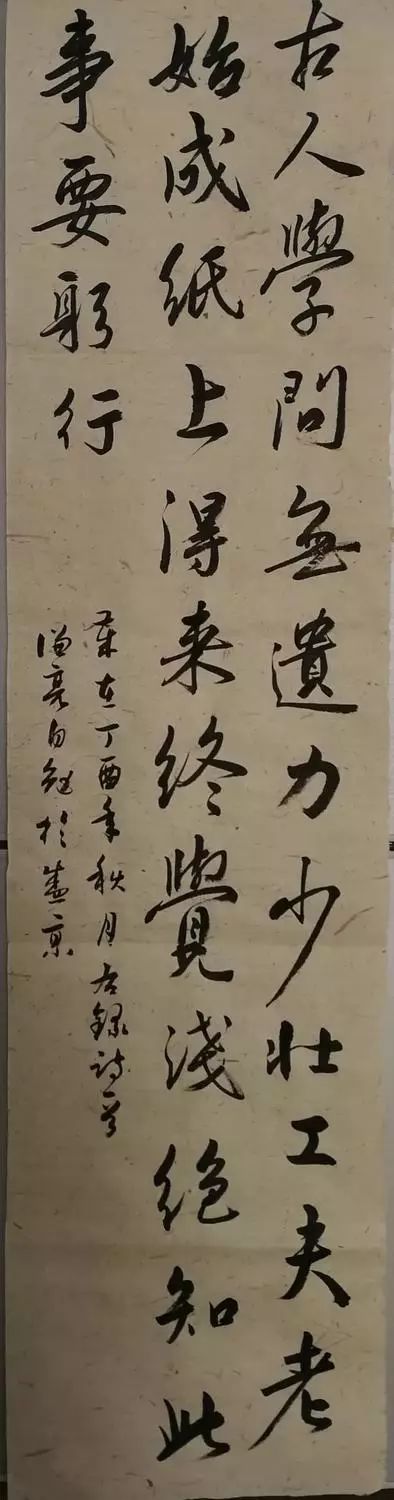 古人學問無遺力少壮工夫老
始成紙上得来終覺淺絕知此
事要躬行
歲在丁酉年秋月右錄詩首
亮自勉於盛京